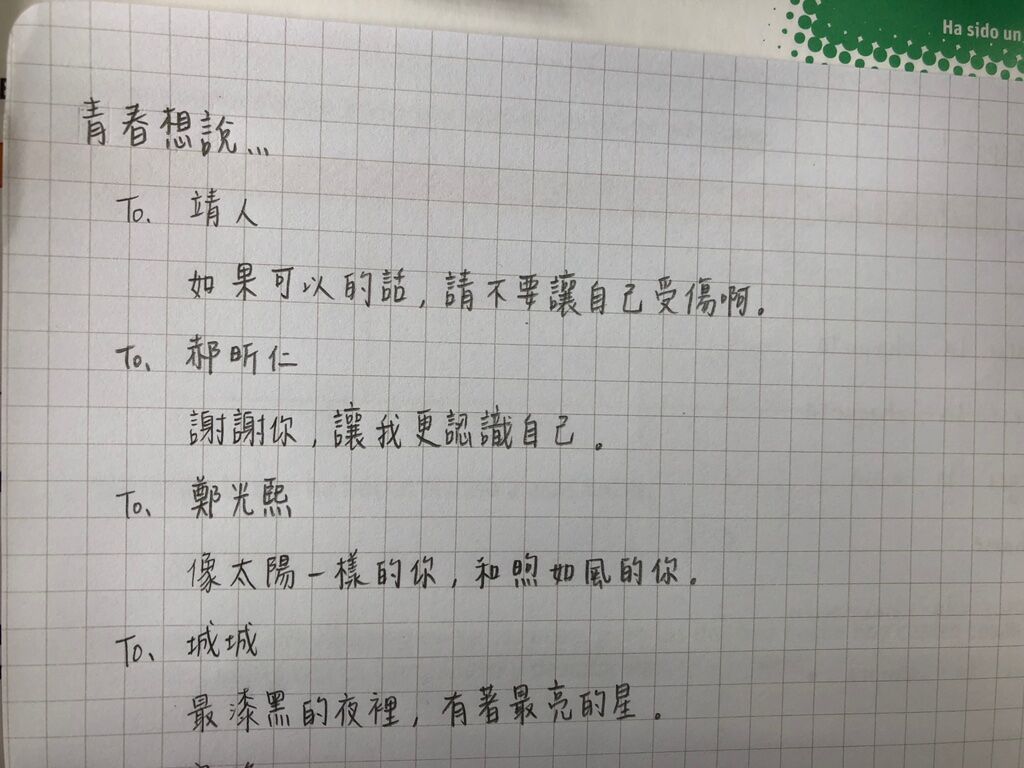 Ha sido un
青春想說...
To. 靖人
如果可以的話，請不要讓自己受傷啊。
To. 郝昕仁
謝謝你，讓我更認識自己。
To. 鄭光熙
像太陽一樣的你，和煦如風的你。
To. 城城
最漆黑的夜裡，有著最亮的星。